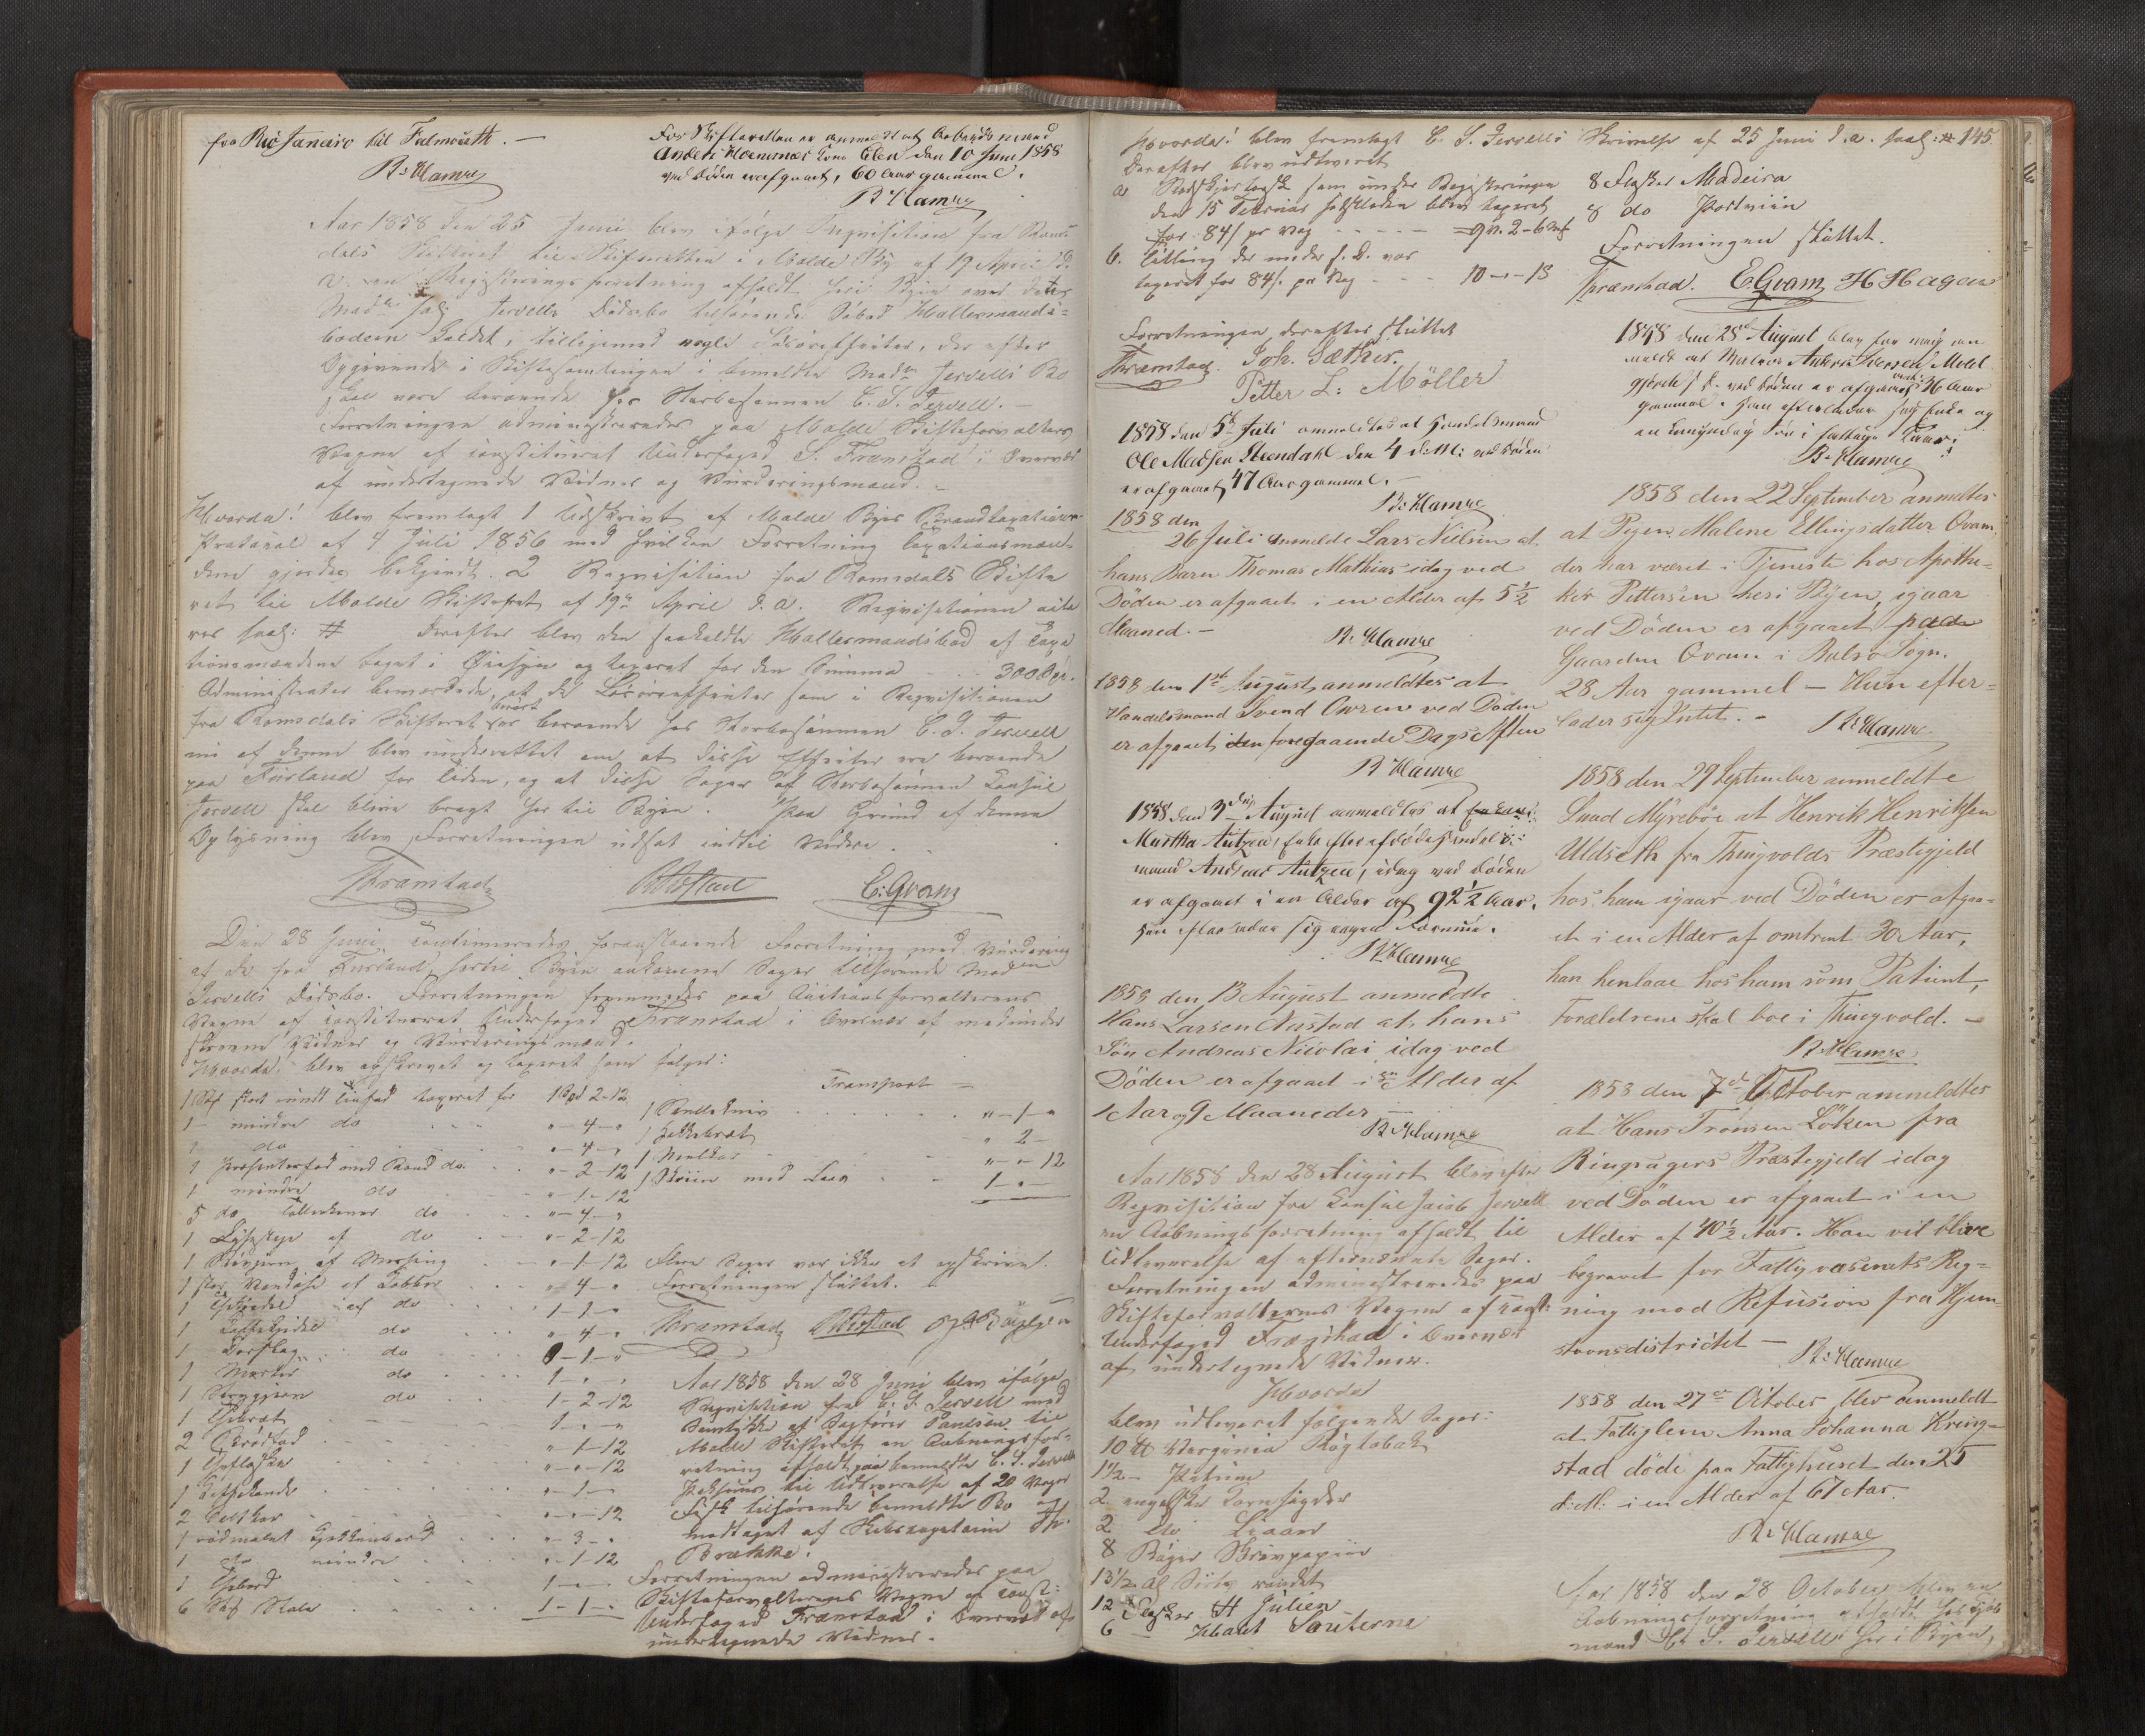 fra Rio Janeiro til Falmouth. —
B. Hamre
For Skifteretten er anmeldt at Arbeidsmand
Anders Kone Elen den 10 Juni 1858
ved Døden er afgaaet, 60 Aar gammel.
B. Hamre
Aar 1858 den 25 Juni blev ifølge Requisition fra Roms-
dals Skifteret til Skifteretten i Molde By af 19 April d.
A. en Registreringsforretning afholdt her i Byen over det
Madm Jervells Dødsbo tilhørende Søbod Hallermands-
boden kaldet, tilligemed nogle Løsøreeffecter, der efter
Opgivende i Skiftesamlingen i bemeldte Madm Jervells Bo
skal være beroende hos Stervbosønnen C. S. Jervell. —
Forretningen administreredes paa Molde Skifteforvalters
Vegne af constitueret Underfoged S. Franstad i Overvær
af undertegnede Vidner og Vurderingsmænd. —
Hvorda! blev fremlagt 1 Udskrivt af Molde Byes Brandtaxations-
Protocol af 4 Juli 1856 med hvilken Forretning Taxationsmæn-
dene gjordes bekjendt. 2 Requisition fra Romsdals Skifte
ret til Molde Skifteret af 19de April d. A. Requisitionen
saal: # Derefter blev den saakaldte Hallermandsbod af Taxa
tionsmændene taget i Øiesyn og taxeret for den Summa 300 Spd.
Administrator bemærkede, at de Løsøreeffecter som i Requisitionen
fra Romsdals Skifteret er anført beroende hos Stervbosønnen C. S. Jervell
nu af denne blev underrettet om at disse Effecter ere beroende
paa Furland for Tiden, og at disse Sager af Stervbosønnen Consul
Jervell skal blive bragt her til Byen. Paa Grund af denne
Oplysning blev Forretningen udsat indtil Videre.
Franstad
E. Gvam
Den 28 Juni continueredes foranstaaende Forretning med Vurdering
af de fra Furland hertil Byen ankomne Sager tilhørende Madm
Jervells Dødsbo. Forretningen fremmedes paa Auctionsforvalterens
Vegne af constitueret Underfoged Franstad i Overvær af medunder
skrevne Vidner og Vurderingsmænd.
Hvorda! blev opskrevet og taxeret som følger:
1 Stk stort rundt Tinfad taxeret for 1 Spd 2-12
1 – mindre do " – 4 – "
1 do " – 4 – "
1 Præsenterfad med Rand do. " – 2 – 12
1 mindre do " – 1 – 12
5 do Tallerkener do " – 4 – "
1 af do " – 2 – 12
1 af Messing " – 1 – 12
1 stor af Kobber " – 4 – "
1 af do 1 – 1 – "
1 Kaffekjedel do " – 4 – "
1 Dørslag do " – 1 – "
1 Morter do 1 – " – "
1 Strygejern do 1 – 2 – 12
1 Thebret 1 – " – "
2 Brødfad " – 1 – 12
1 " – " – 12
1 Kaffekande " – 1 – "
2 " – " – 12
1 rødmalet Kjøkkenbord " – 3 – "
1 do mindre " – 1 – 12
1 Thebord 1 – " – "
6 Stk Stole 1 – 1 – "
Transport —
1 " – 1 – "
1 " 2 –
1 " – " – 12
1 Skrin med Laas 1 – " –
Flere Sager var ikke at opskrive.
Forretningen sluttet.
Franstad
Aar 1858 den 28 Juni blev ifølge
Requisition fra C. S. Jervell med
Samtykke af Sagfører Paulsen til
Molde Skifteret en Aabningsfor-
retning afholdt paa bemeldte C. S. Jervells
Pakhuus til Udleverelse af 20 Voger
Fisk tilhørende bemeldte Bo og
modtaget af Skibscapitain
Brække.
Forretningen administreredes paa
Skifteforvalterens Vegne af const:
Underfoged Franstad i Overvær af
undertegnede Vidner. –
145
Hvorda! blev fremlagt C. S. Jervells Skrivelse af 25 Juni d. A. saal: #
Derefter blev udleveret
a som under Registreringen
den 15 Februar sidstleden blev taxeret
for 84/ pr Vog – – – – = 9 V. 2 – 6
b. Titling der under s. D. var
taxeret for 84/. pr Vog – – 10 – " – 18
Forretningen derefter sluttet
Franstad. Joh. Sæther.
Petter L: Möller
1858 den 5te Juli anmeldtes at Handelsmand
Ole Madsen Steendahl den 4 d: M: ved Døden
er afgaaet, 47 Aar gammel. –
B: Hamre
1858 den
26 Juli anmeldte Lars Nielsen at
hans Barn Thomas Mathias idag ved
Döden er afgaaet i en Alder af 5½
Maaned. –
B. Hamre
1858 den 1ste August, anmeldtes at
Handelsmand Svend Owren ved Döden
er afgaaet, den foregaaende Dags Aften
B Hamre
1858 den 3die August anmeldtes at
Martha Autzen, Enke efter afdøde Handels-
mand Andreas Autzen, idag ved Døden
er afgaaet i en Alder af 92½ Aar.
Hun efterlader sig ingen Formue.
B. Hamre
1858 den 13 August anmeldte
Hans Larsen Nustad at hans
Sön Andreas Nicolai idag ved
Döden er afgaaet i en Alder af
1 Aar og 9 Maaneder —
B. Hamre
Aar 1858 den 28 August blev efter
Requisition fra Consul Jacob Jervell
en Aabningsforretning afholdt til
Udleverelse af efternævnte Sager.
Forretningen administreredes paa
Skifteforvalterens Vegne af const:
Underfoged Franstad i Overvær
af undertegnede Vidner.
Hvorda
blev udleveret følgende Sager:
10 ℔ Virginia Røgtobak
1½ –
2 engelske
2 do Liaaer
8 Bøger Skrivpapiir
13½ Al
12 Flasker St Julien
6 — Haut Sauterne
8 Flasker Madeira
8 do Portviin
Forretningen sluttet.
Franstad. E. Gvam H Hagen
1858 den 28de August blev for mig an
meldt at Anders Iversen Mold-
gjerdet s. D. ved Døden er afgaaet, 36 Aar
gammel. Han efterlader sig Enke og
en umyndig Søn i Aar.
B. Hamre
1858 den 22 September anmeldtes
at Pigen Malene Ellingsdatter Qvam,
der har været i Tjeneste hos Apothe-
ker Pettersen her i Byen, igaar
ved Döden er afgaaet paa
Gaarden Qvam i Bolsö Sogn.
28 Aar gammel – Hun efter-
lader sig Intet. – B: Hamre
1858 den 29 September anmeldte
Knud Myreböe at Henrik Henriksen
Uldseth fra Thingvolds Præstegjeld
hos ham igaar ved Döden er afgaa-
et i en Alder af omtrent 30 Aar,
han henlaae hos ham som Patient,
Forældrene skal boe i Thingvold. –
B: Hamre
1858 den 7de October anmeldtes
at Hans Tronsen Löken fra
Ringsagers Præstegjeld idag
ved Döden er afgaaet i en
Alder af 40½ Aar. Han vil blive
begravet for Fattigvæsenets Reg-
ning mod Refusion fra Hjem-
stavnsdistrictet —
B: Hamre
1858 den 27de October blev anmeldt
at Fattiglem Anna Johanna Kring-
stad döde paa Fattighuset den 25
d: M: i en Alder af 67 Aar.
B. Hamre
Aar 1858 den 28 October blev en
Aabningsforretning afholdt hos Kjøb
mand C. S. Jervell her i Byen,